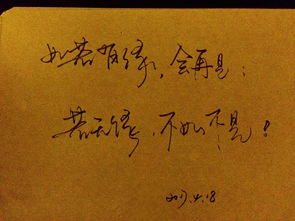 如若有缘,会再见;
若无缘,不如不见!
2017.4.18